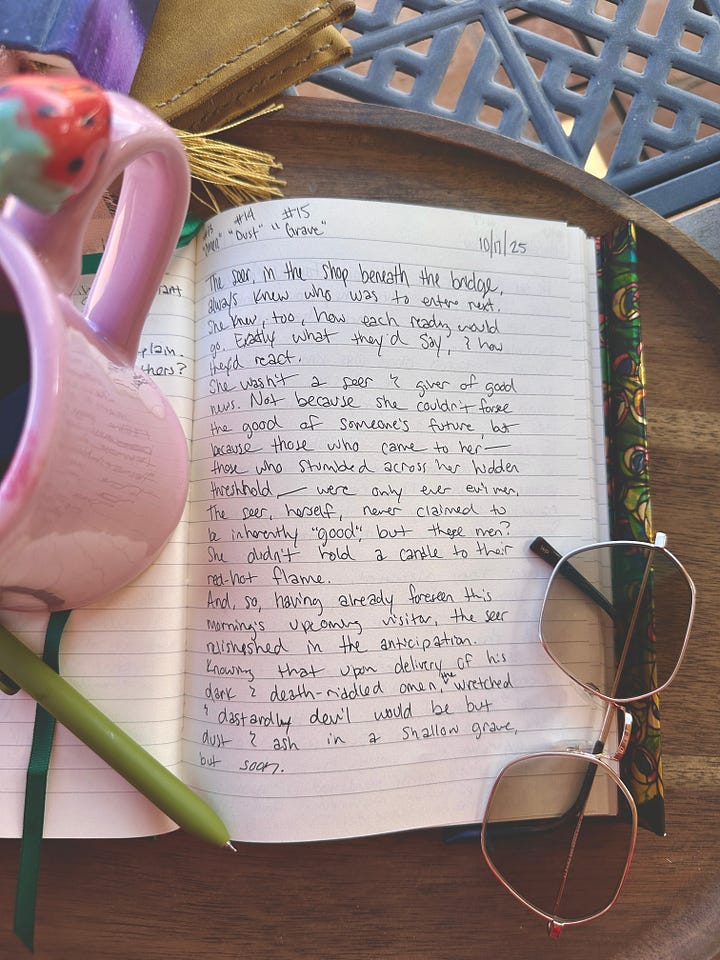 #14 #15
"Omen" "Dust" "Grave" 10/17/25
The seer, in the shop beneath the bridge,
always knew who was to enter next.
She knew, too, how each reading would
go. Exactly what they'd say, & how
they'd react.
She wasn't a seer & giver of good
news. Not because she couldn't forsee
the good of someone's future, but
because those who came to her—
those who stumbled across her hidden
threshhold, — were only ever evil men.
The seer, herself, never claimed to
be inherently "good", but these men?
She didn't hold a candle to their
red-hot flame.
And, so, having already foreseen this
morning's upcoming visitor, the seer
relisheshed in the anticipation.
Knowing that upon delivery of his
dark & death-riddled omen, the wretched
& dastardly devil would be but
dust & ash in a shallow grave,
but soon.
plain.
thers?